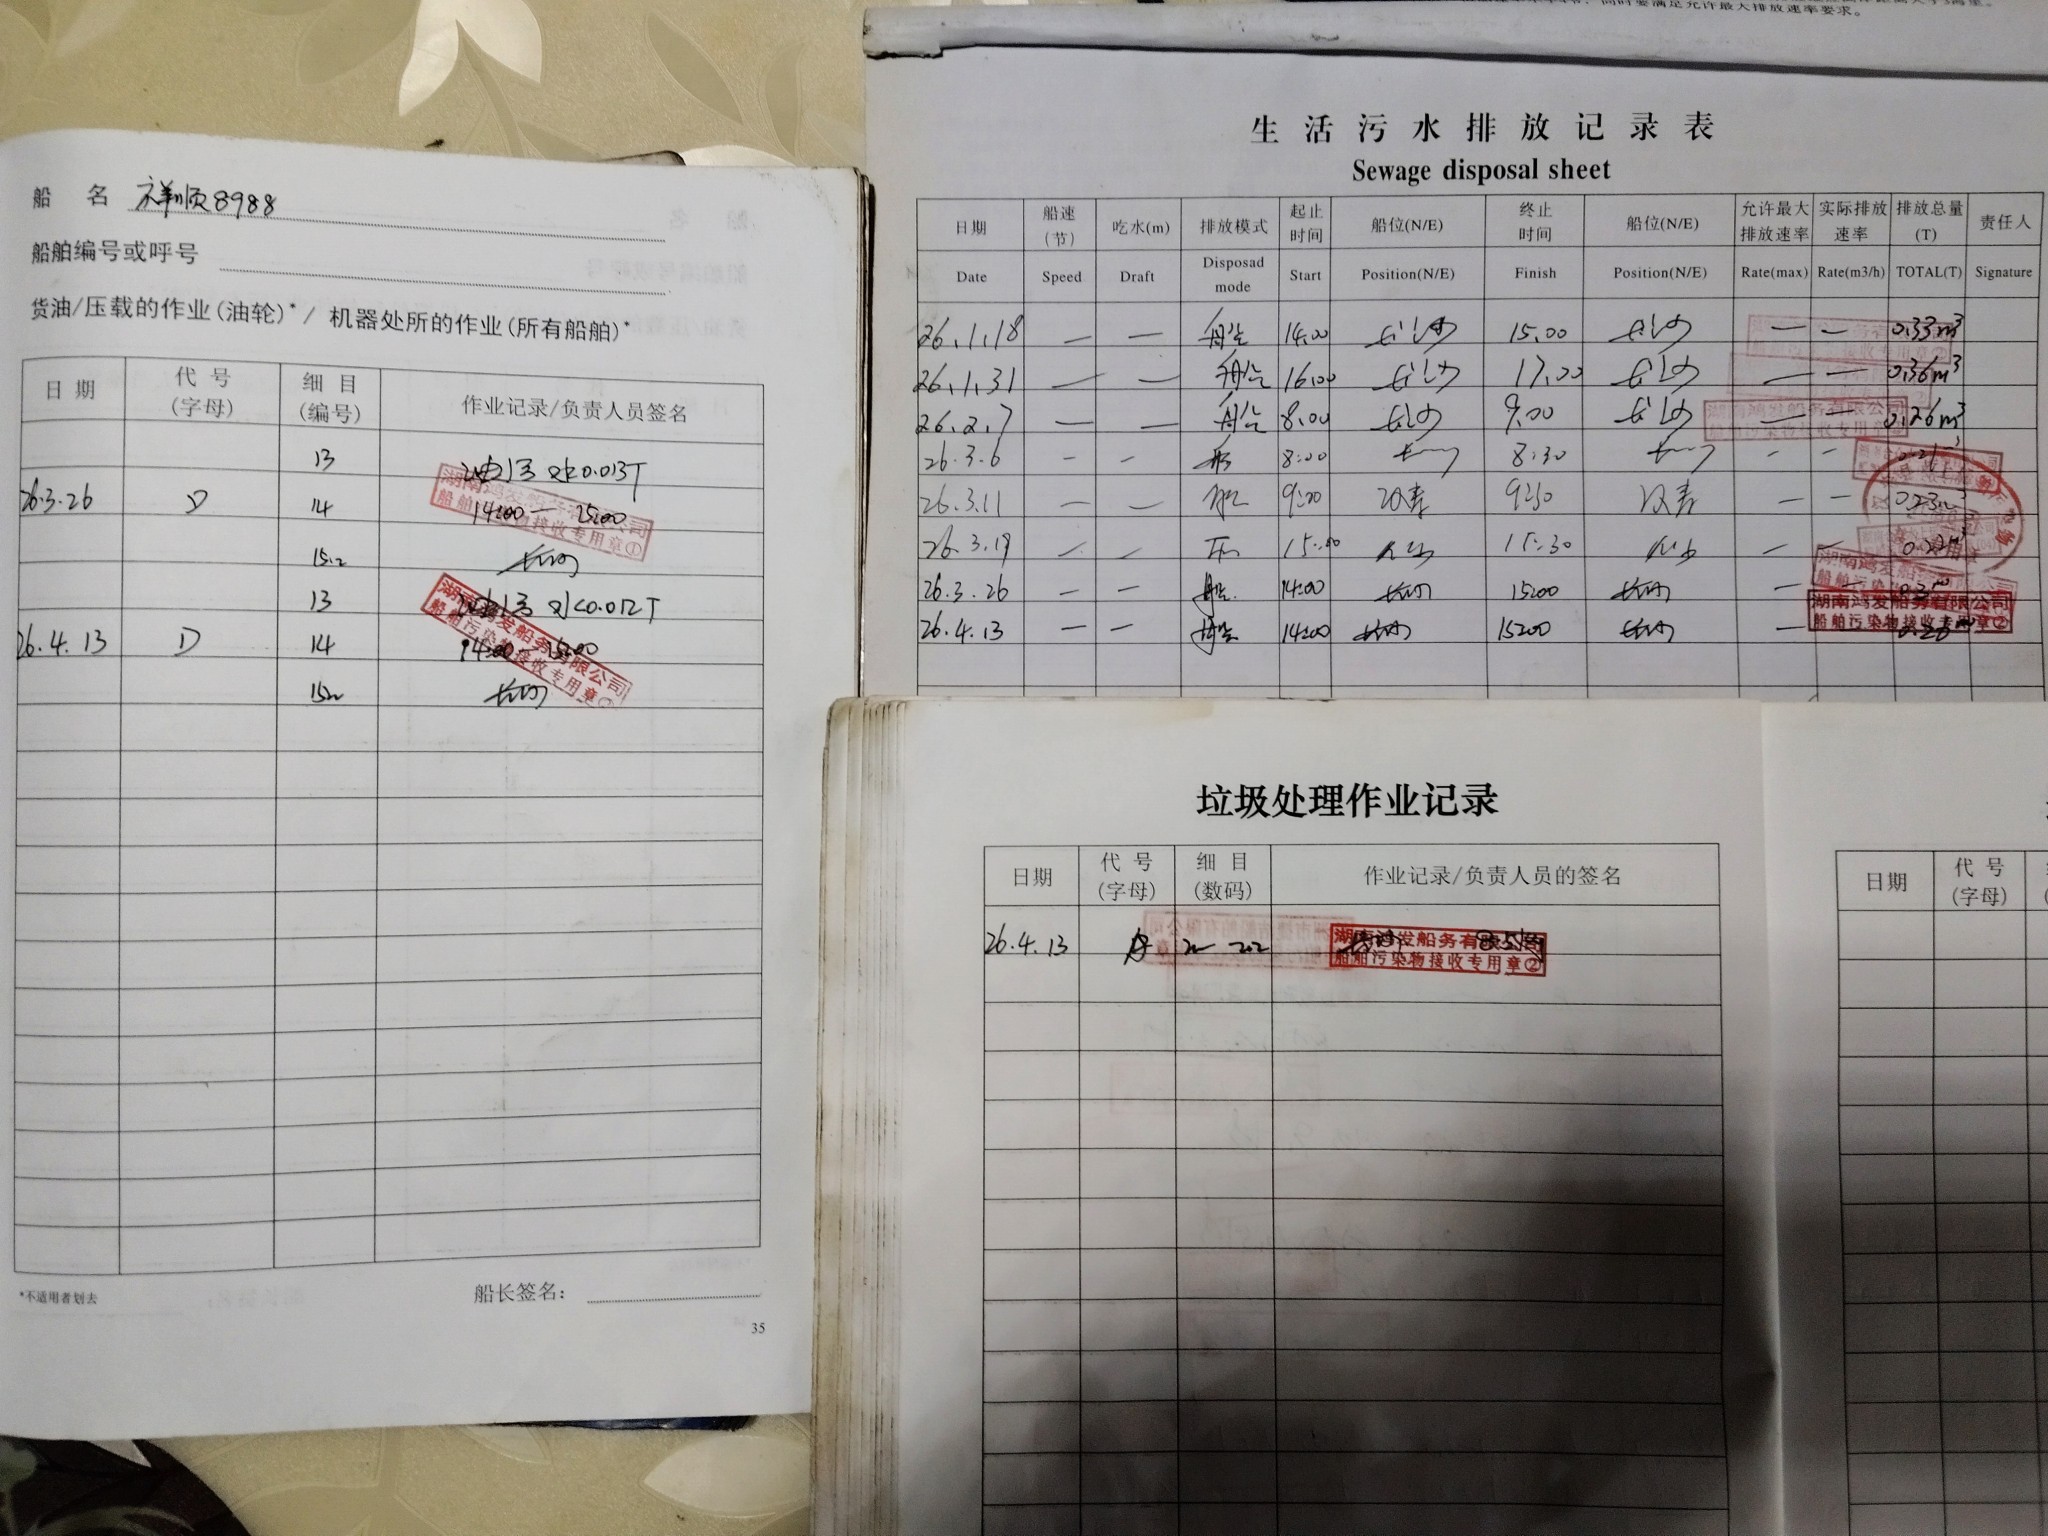 船 名 祥顺8988
船舶编号或呼号
货油/压载的作业(油轮)* / 机器处所的作业(所有船舶)*
日 期 代 号 (字母) 细 目 (编号) 作业记录/负责人员签名
13 油污水0.013T
26.3.26 D 14 14:00—15:00
15.2 长沙
13 油污水0.012T
26.4.13 D 14 14:00—15:00
15.2 长沙
湖南鸿发船务有限公司
船舶污染物接收专用章①
湖南鸿发船务有限公司
船舶污染物接收专用章②
*不适用者划去
船长签名：
35
同时要满足允许最大排放速率要求。
生活污水排放记录表
Sewage disposal sheet
日期 船速(节) 吃水(m) 排放模式 起止时间 船位(N/E) 终止时间 船位(N/E) 允许最大排放速率 实际排放速率 排放总量(T) 责任人
Date Speed Draft Disposad mode Start Position(N/E) Finish Position(N/E) Rate(max) Rate(m3/h) TOTAL(T) Signature
26.1.18 — — 14.00 长沙 15.00 长沙 — — 0.33m³
26.1.31 — — 16.00 长沙 17.00 长沙 — — 0.36m³
26.2.7 — — 8.00 长沙 9.00 长沙 — — 0.26m³
26.3.6 — — 8:00 8:30 — —
26.3.11 — — 9:00 汉寿 9:30 汉寿 — — 0.23m³
26.3.19 — — 15:00 15:30 — —
26.3.26 — — 14:00 长沙 15:00 长沙 —
26.4.13 — — 14:00 长沙 15:00 长沙 —
湖南鸿发船务有限公司
船舶污染物接收专用章②
垃圾处理作业记录
日期 代 号 (字母) 细 目 (数码) 作业记录/负责人员的签名
26.4.13
湖南鸿发船务有限公司
船舶污染物接收专用章②
日期 代 号 (字母)